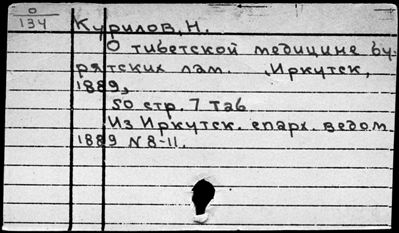 0
134
Курилов, Н.
О тибетской медицине бу-
рятских лам. Иркутск,
1889,
50 стр. 7 таб.
Из Иркутск. епарх. ведом.
1889 N 8-11.